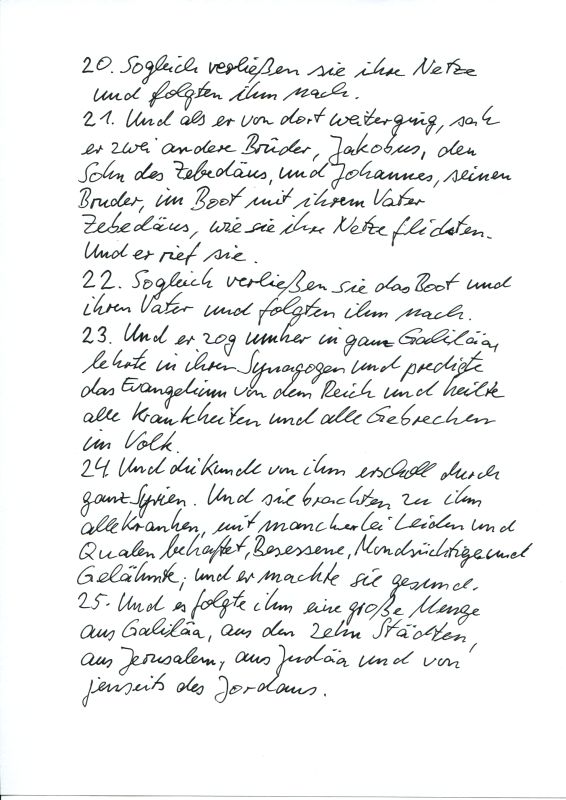 20. Sogleich verließen sie ihre Netze
und folgten ihm nach.
21. Und als er von dort weiterging, sah
er zwei andere Brüder, Jakobus, den
Sohn des Zebedäus, und Johannes, seinen
Bruder, im Boot mit ihrem Vater
Zebedäus, wie sie ihre Netze flickten.
Und er rief sie.
22. Sogleich verließen sie das Boot und
ihren Vater und folgten ihm nach.
23. Und er zog umher in ganz Galiläa,
lehrte in ihren Synagogen und predigte
das Evangelium von dem Reich und heilte
alle Krankheiten und alle Gebrechen
im Volk.
24 Und die Kunde von ihm erscholl durch
ganz Syrien. Und sie brachten zu ihm
alle Kranken, mit mancherlei Leiden und
Qualen behaftet, Besessene, Mondsüchtige und
Gelähmte; und er machte sie gesund.
25. Und es folgte ihm eine große Menge
aus Galiläa, aus den Zehn Städten,
aus Jerusalem, aus Judäa und von
jenseits des Jordans.